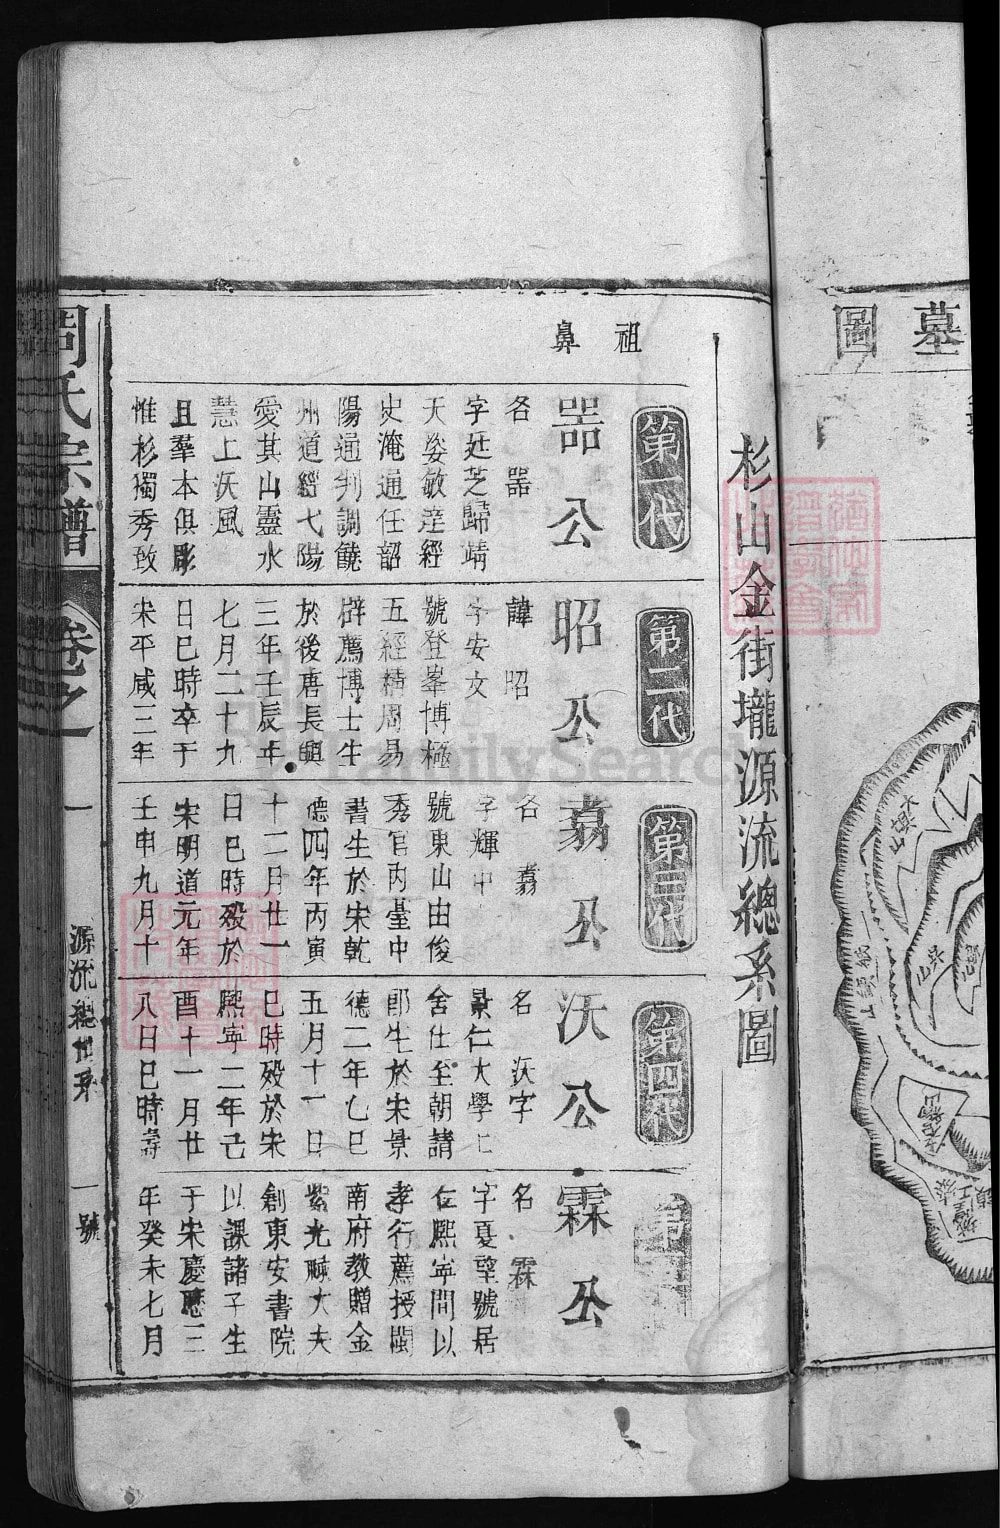 墓圖
杉山金街壠源流總系圖
鼻祖
第一代
噐公
名噐
字廷芝歸靖
天姿敏達經
史淹通任韶
陽通判調饒
州道經弋陽
愛其山靈水
慧上沃風
且羣本俱彫
惟杉獨秀致
第二代
昭公
諱昭
字安文
號登峯博極
五經精周易
辟薦博士生
於後唐長興
三年壬辰年
七月二十九
日巳時卒于
宋平咸三年
第三代
翥公
名翥
字輝中
號東山由俊
秀官丙臺中
書生於宋乾
德四年丙寅
十二月廿一
日巳時殁於
宋明道元年
壬申九月十
第四代
沃公
名沃字
景仁大學上
舍仕至朝請
郎生於宋景
德二年乙巳
五月十一日
巳時殁於宋
熙寧二年己
酉十一月廿
八日巳時壽
第
霖公
名霖
字夏望號居
仁熙寧間以
孝行薦授閩
南府教贈金
紫光祿大夫
創東安書院
以課諸子生
于宋慶歷三
年癸未七月
周氏宗譜
卷之一
源流總世系
一號
FamilySearch